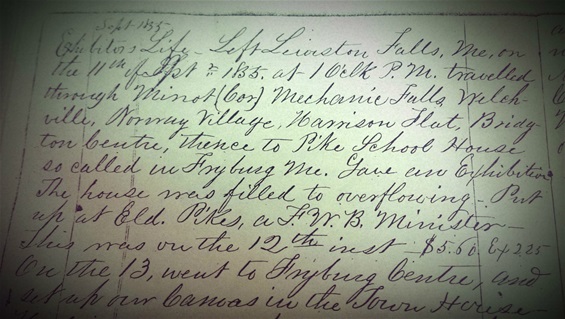 Sept 1835-
Exhibitors Life - Left Lewiston Falls, Me, on
the 11th of Sept - 1835. at 1 Oclk P. M. travelled
through Minot (Cor) Mechanic Falls, Welch-
ville, Norway Village, Harrison Flat, Bridg-
ton Centre, thence to Pike School House
so called in Fryburg Me. Gave an Exhibition
The house was filled to overflowing - Put
up at Eld. Pikes, a F. W. B. Minister -
This was on the 12th inst $5.50 Ex 2.25
On the 13, went to Fryburg Centre, and
set up our Canvas in the Town House